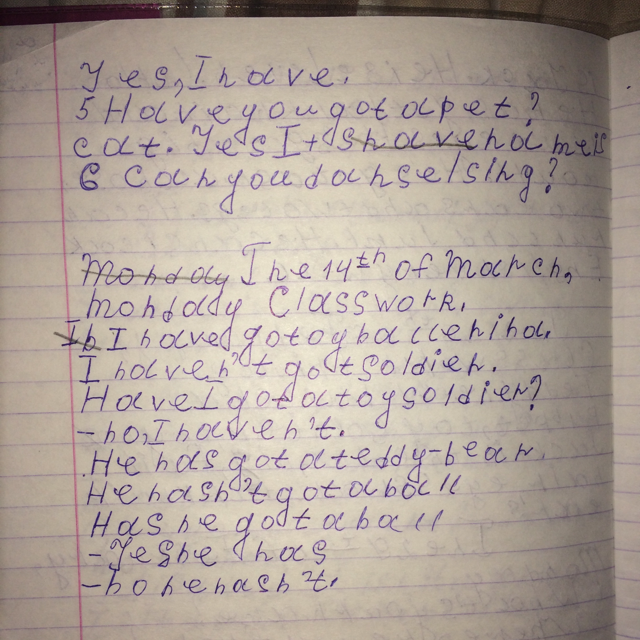 Yes, I have.
5 Have you got a pet?
cat. Yes Its have name is
6 Can you danse/sing?
Monday The 14th of March,
Monday Classwork.
I have got toy ballerina.
I haven't got soldier.
Have I got a toy soldier?
- no, I haven't.
He has got a teddy-bear.
He hasn't got a ball
Has he got a ball
- Yes he has
- no he hasn't.